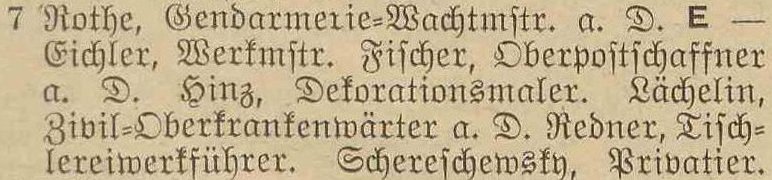 7 Rothe, Gendarmerie-Wachtmstr. a. D. E —
Eichler, Werkmstr. Fischer, Oberpostschaffner
a. D. Hinz, Dekorationsmaler. Lächelin,
Zivil-Oberkrankenwärter a. D. Redner, Tisch-
lereiwerkführer. Schereschewsky, Privatier.